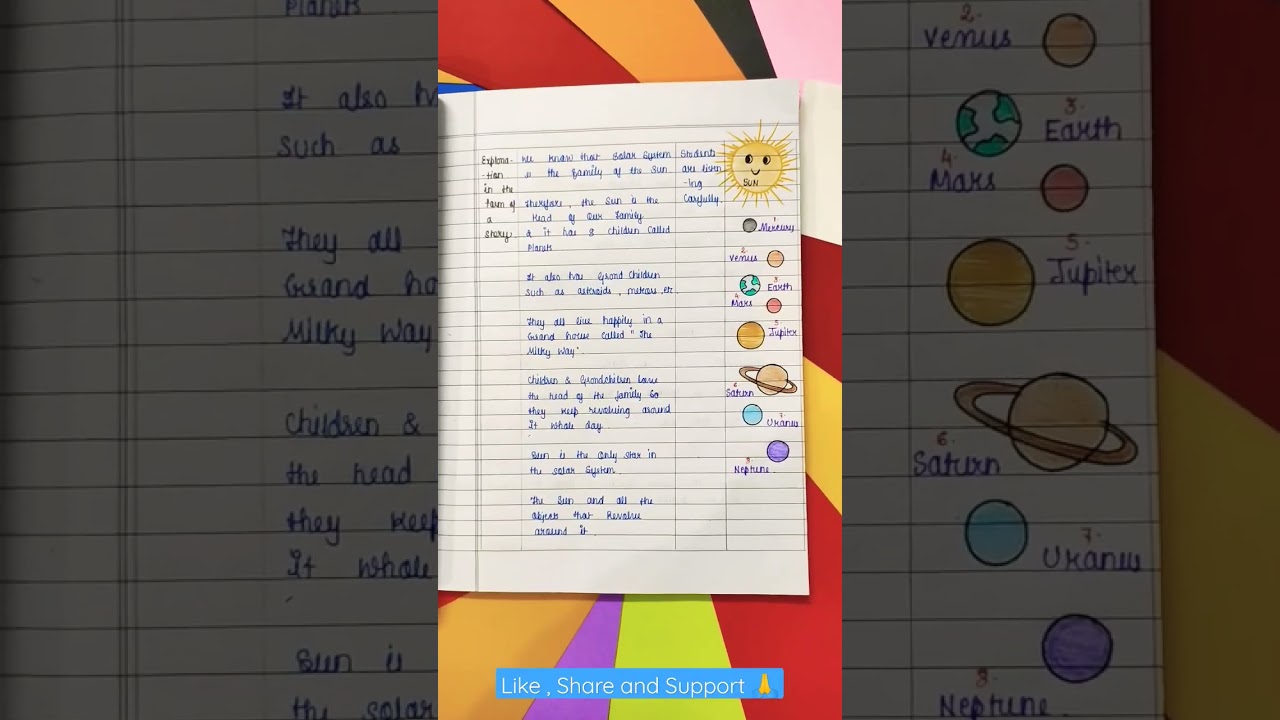 Explana-
-tion
in the
form of
a
story
We know that Solar System
is the family of the Sun
Therefore, the Sun is the
Head of Our Family
& it has 8 children Called
Planets
It also has Grand Children
Such as asteroids, meteors, etc.
They all live happily in a
Grand house called "The
Milky Way".
Children & Grandchildren love
the head of the family So
they keep revolving around
It whole day.
Sun is the Only star in
the solar System.
The Sun and all the
objects that Revolve
around it.
Students
are listen
-ing
Carefully.
SUN
1
Mercury
2.
Venus
3.
Earth
4.
Mars
5.
Jupiter
6.
Saturn
7.
Uranus
8.
Neptune.
Like , Share and Support 🙏
Planets
It also h
Such as
They all
Grand ho
Milky Way
Children &
the head
they keep
It whole
Sun is
the solar
2.
Venus
3.
Earth
4.
Mars
5.
Jupiter
6.
Saturn
7.
Uranus
8.
Neptune.